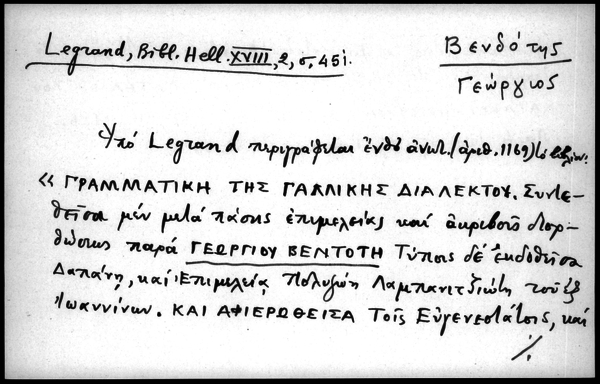 Legrand, Bibl. Hell. XVIII, 2, σ. 451.
Βενδότης
Γεώργιος
Ὑπό Legrand περιγράφεται ἔνθ' ἀνωτ. (ἀριθ. 1169) τό βιβλίον:
« ΓΡΑΜΜΑΤΙΚΗ ΤΗΣ ΓΑΛΛΙΚΗΣ ΔΙΑΛΕΚΤΟΥ. Συντε-
θεῖσα μέν μετά πάσης ἐπιμελείας καί ἀκριβοῦς διορ-
θώσεως παρά ΓΕΩΡΓΙΟΥ ΒΕΝΤΟΤΗ Τύποις δέ ἐκδοθεῖσα
Δαπάνῃ, καί Ἐπιμελείᾳ Πολυζώη Λαμπανιτζιώτη τοῦ ἐξ
Ἰωαννίνων. ΚΑΙ ΑΦΙΕΡΩΘΕΙΣΑ Τοῖς Εὐγενεστάτοις, καί
./.